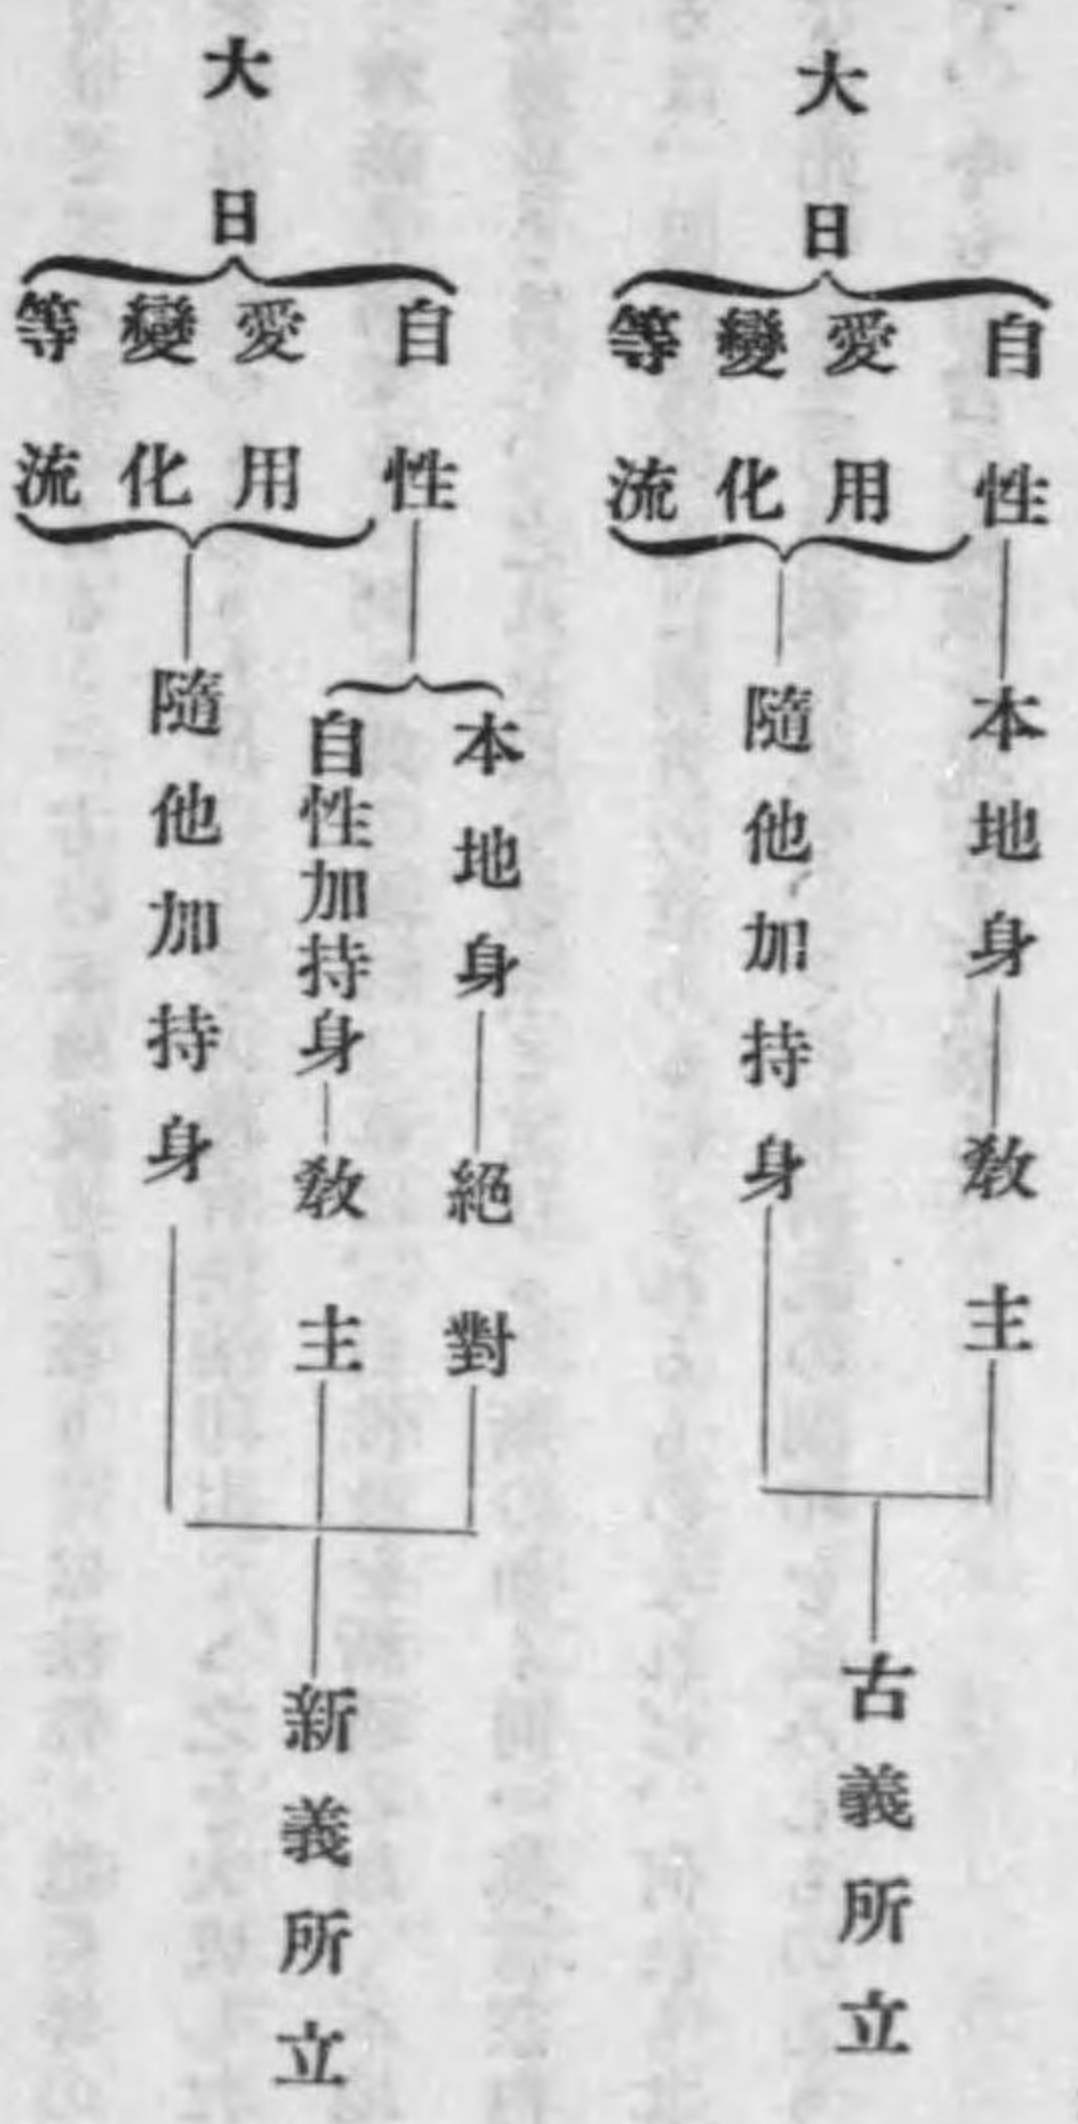 大日
自性
愛用
變化
等流
本地身
教主
隨他加持身
古義所立
大日
自性
愛用
變化
等流
本地身
絕對
自性加持身
教主
隨他加持身
新義所立